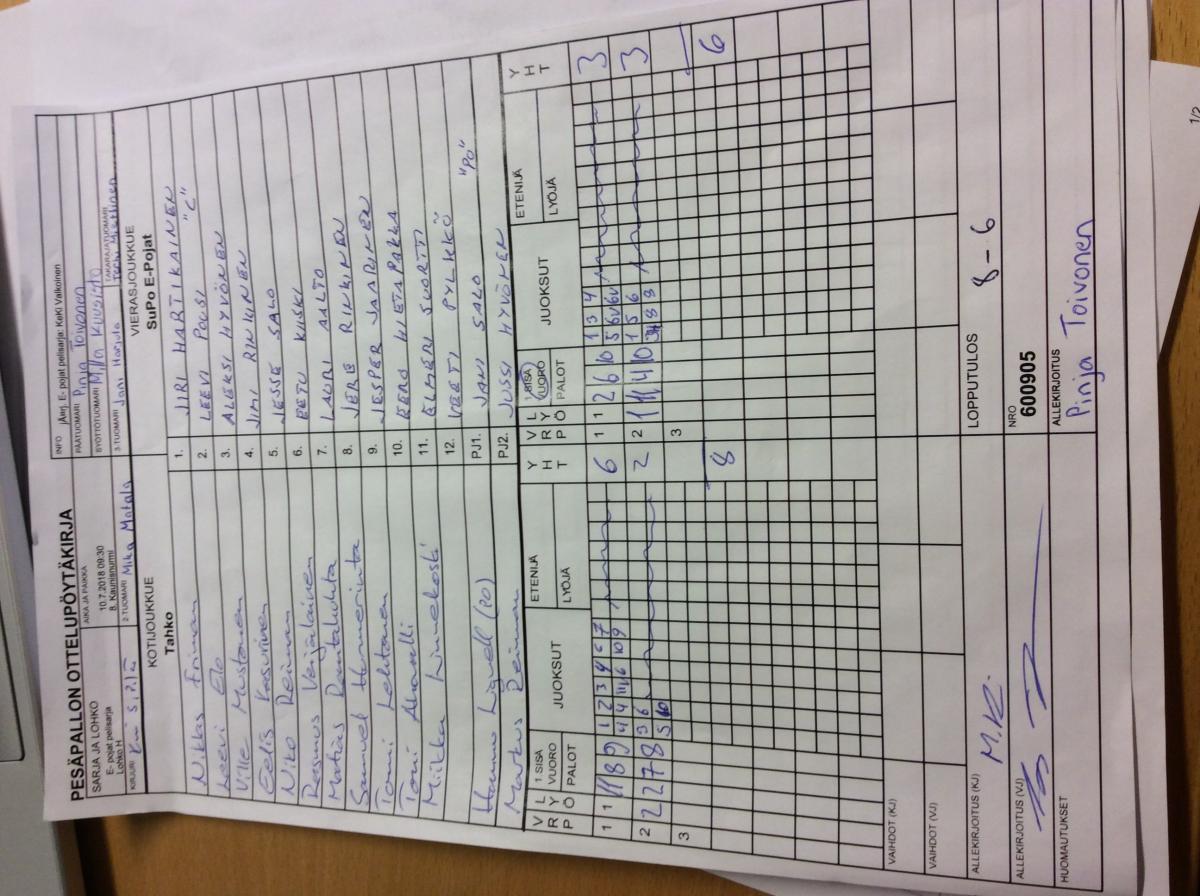 PESÄPALLON OTTELUPÖYTÄKIRJA
SARJA JA LOHKO
E- pojat pelisarja
Lohko H
AIKA JA PAIKKA
10.7.2018 09:30
8. Kaunisnurmi
INFO
E- pojat pelisarja: KeKi Valkoinen
PÄÄTUOMARI Pinja Toivonen
SYÖTTÖTUOMARI Milla Kuusisto
KIRJURI
2-TUOMARI Mika Matala
3-TUOMARI Jani Harjula
TAKARAJATUOMARI
KOTIJOUKKUE
Tahko
VIERASJOUKKUE
SuPo E-Pojat
Niklas Friman 1. JIRI HARTIKAINEN "C"
Leevi Elo 2. LEEVI POUSI
Ville Mustonen 3. ALEKSI HYVÖNEN
Eelis Kasurinen 4. JIMI RINKINEN
Niko Reiman 5. JESSE SALO
Rasmus Veijalainen 6. EETU KIISKI
Matias Rantaluhta 7. LAURI AALTO
Samuel 8. JERE RINKINEN
Tommi Lehtonen 9. JESPER JAARINEN
Toni Ahovalli 10. EERO WIETAPAKKA
Miika Linnekoski 11. ELMERI SUORTTI
12. VEETI PYLKKÖ
Hannu Lignell (PO) PJ1. JANI SALO "PO"
Markus Reiman PJ2. JUSSI HYVÖNEN
VRP LYÖ 1.SISÄVUORO PALOT JUOKSUT ETENIJÄ LYÖJÄ YHT VRP LYÖ 1.SISÄVUORO PALOT JUOKSUT ETENIJÄ LYÖJÄ YHT
1 1 11 8 9 1 2 3 4 6 7 6 1 1 2 6 10 1 3 4 3
4 4 11 6 10 9 5 6V 6V
2 2 2 7 8 3 6 2 2 1 11 4 10 1 5 6 3
5 10
3 3
8 6
VAIHDOT (KJ)
VAIHDOT (VJ)
ALLEKIRJOITUS (KJ) M.R.
LOPPUTULOS 8 - 6
ALLEKIRJOITUS (VJ)
NRO
600905
HUOMAUTUKSET
ALLEKIRJOITUS
Pinja Toivonen
1/2